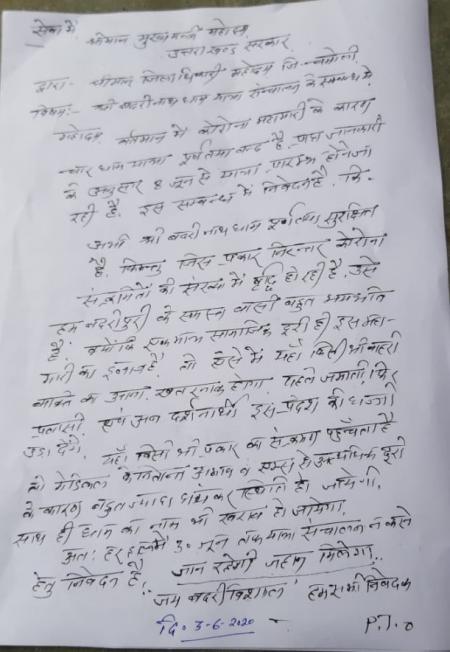 सेवा में
श्रीमान मुख्यमन्त्री महोदय
उत्तराखण्ड सरकार
द्वारा - श्रीमान जिलाधिकारी महोदय जि- चमोली
विषय:- श्री बदरीनाथ धाम यात्रा संचालन के सम्बन्ध में
महोदय वर्तमान में कोरोना महामारी के कारण
चार धाम यात्रा पूर्णतया बन्द है. जानकारी
के अनुसार 8 जून से यात्रा प्रारम्भ होने जा
रही है. इस सम्बन्ध में निवेदन है. कि.
अभी श्री बदरीनाथ धाम पूर्णतया सुरक्षित
है. किन्तु जिस प्रकार निरन्तर कोरोना
संक्रमितों की संख्या में वृद्धि हो रही है. उससे
हम बदरीपुरी के समस्त वासी बहुत भयभीत
है. क्योंकि एकमात्र सामाजिक दूरी ही इस महा-
मारी का इलाज है. तो ऐसे में यहाँ किसी भी बाहरी
व्यक्ति का आना खतरनाक होगा पहले जमाती, फिर
प्रवासी एवं अब दर्शनार्थी इस प्रदेश की धज्जी
उड़ा देंगे. यहाँ किसी भी प्रकार का संक्रमण पहुँचता है
तो मेडिकल अभाव व अत्यधिक दूरी
के कारण बहुत ज्यादा भयंकर स्थिति हो जायेगी.
साथ ही धाम का नाम भी खराब हो जायेगा.
अतः हर हाल में 30 जून तक यात्रा संचालन न करने
हेतु निवेदन है. जान रहेगी जहान मिलेगा..
जय बदरी विशाल हम सभी निवेदक
दि० 3-6-2020
P.T.O